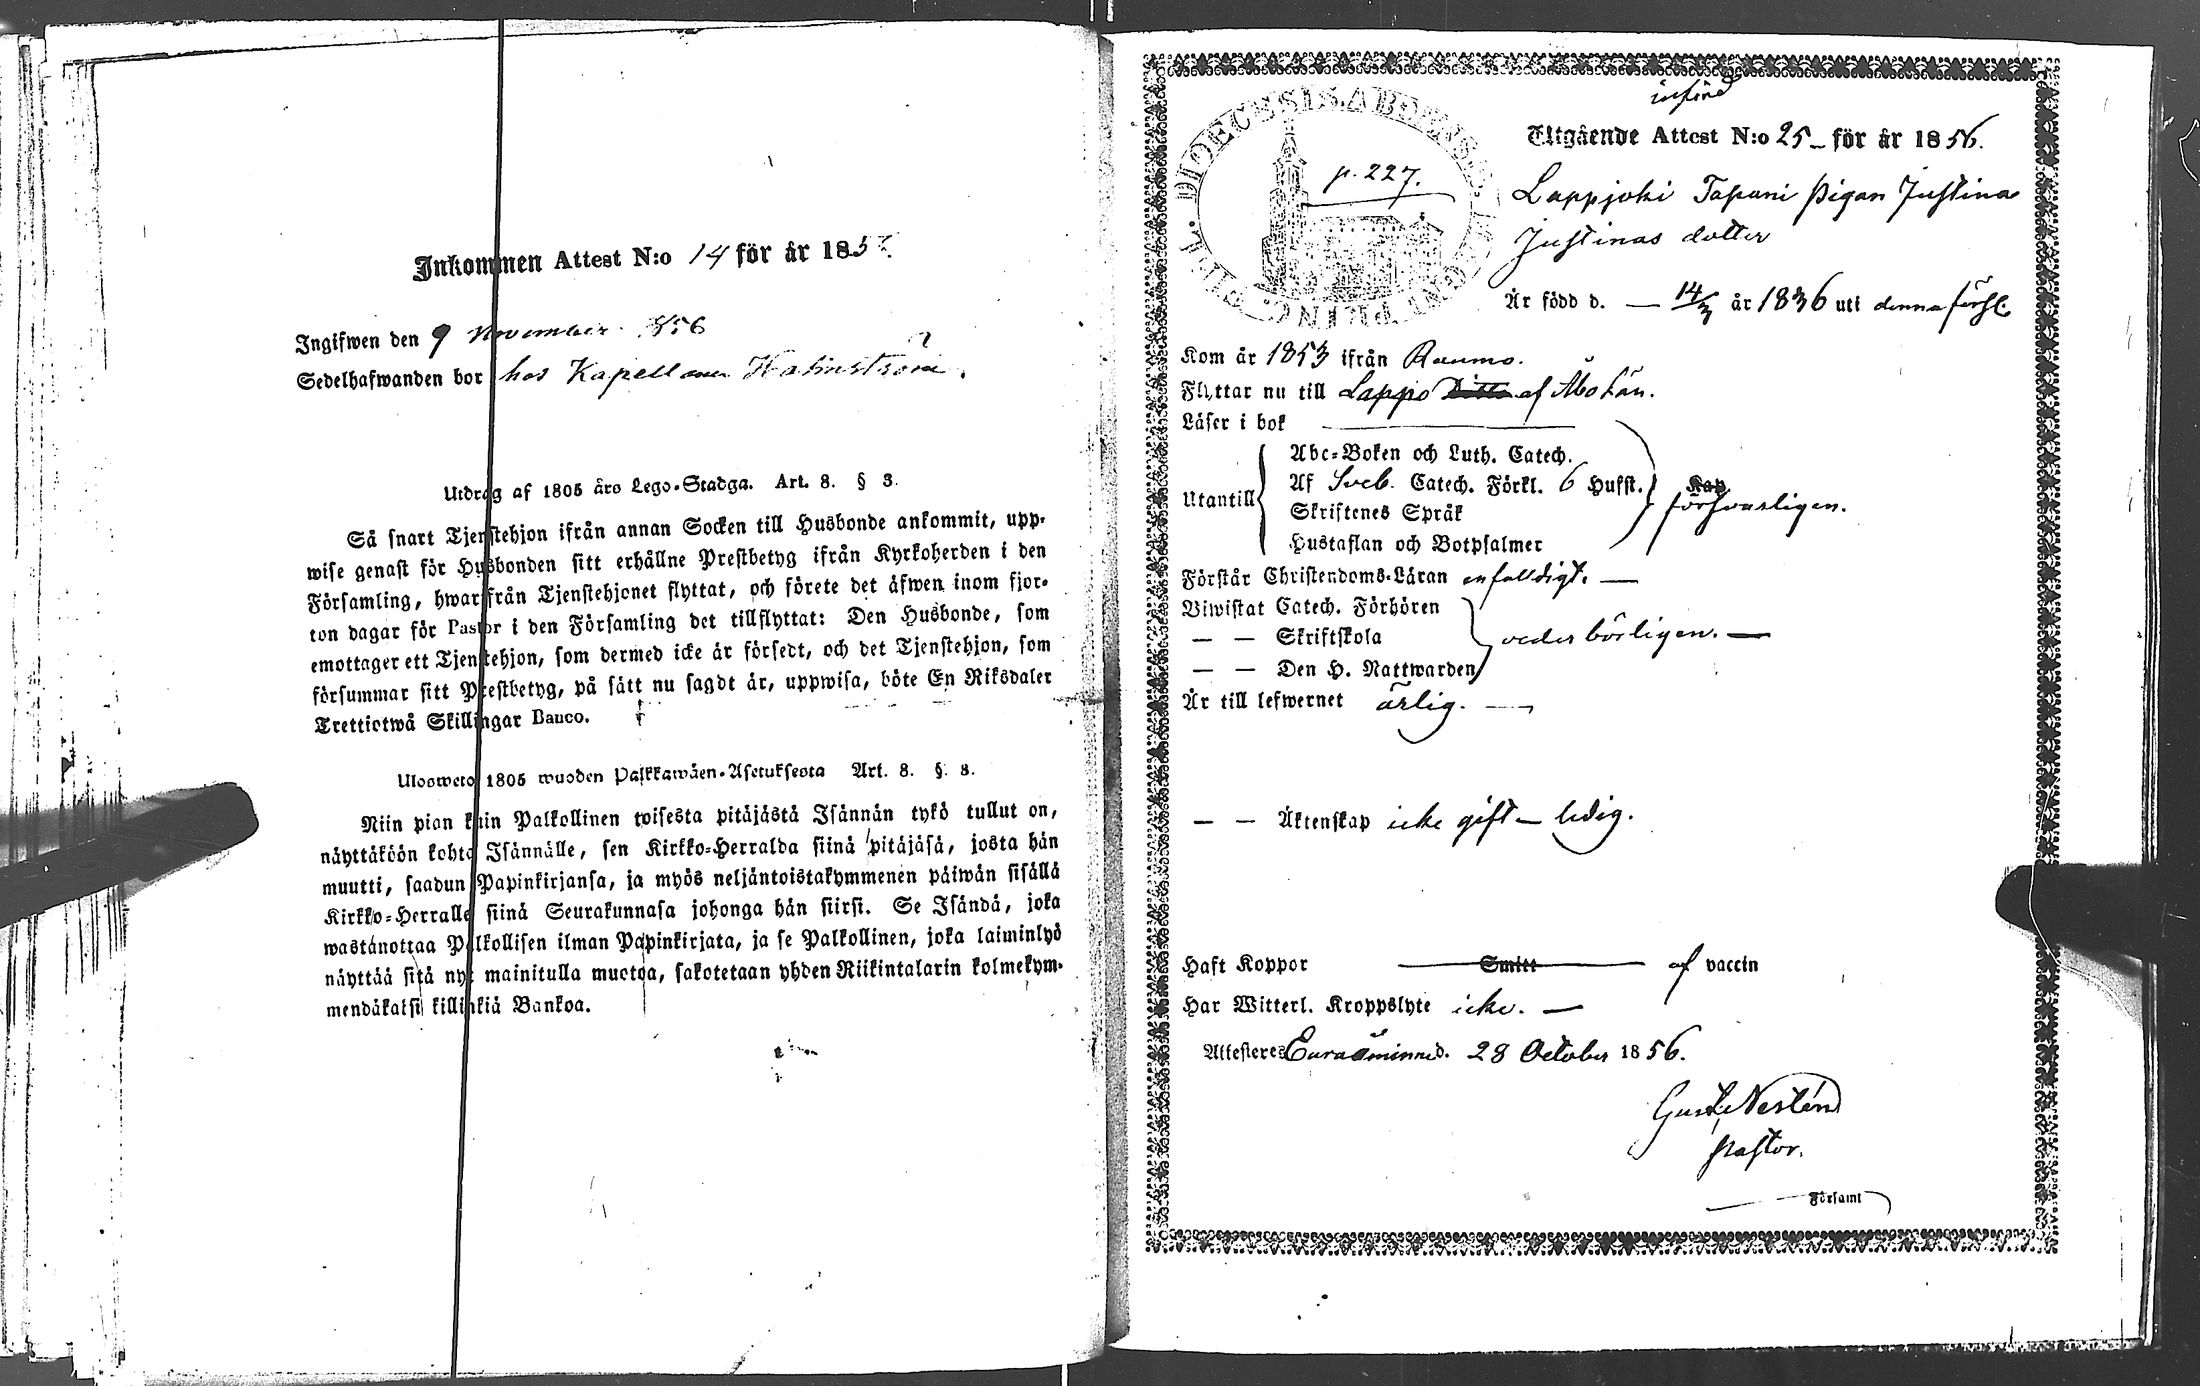 Inkommen Attest N:o 14 för år 185
Ingifwen den 9 November 1856
Sedelhafwanden bor hos Kapellanen
Utdrag af 1805 års Lego-Stadga. Art. 8. § 3.
Så snart Tjenstehjon ifrån annan Socken till Husbonde ankommit, upp-
wise genast för Husbonden sitt erhållne Prestbetyg ifrån Kyrkoherden i den
Församling, hwarifrån Tjenstehjonet flyttat, och förete det äfwen inom fjor-
ton dagar för Pastor i den Församling det tillflyttat: Den Husbonde, som
emottager ett Tjenstehjon, som dermed icke är försedt, och det Tjenstehjon, som
försummar sitt Prestbetyg, på sätt nu sagdt är, uppwisa, böte En Riksdaler
Trettiotwå Skillingar Banco.
Ulosweto 1805 wuoden Palkkawäen-Asetuksesta Art. 8. §. 3.
Niin pian kuin Palkollinen toisesta pitäjästä Isännän tykö tullut on,
näyttäköön kohta Isännälle, sen Kirkko-Herralda siinä pitäjäsä, josta hän
muutti, saadun Papinkirjansa, ja myös neljäntoistakymmenen päiwän sisällä
Kirkko-Herralle siinä Seurakunnasa johonga hän siirsi. Se Isändä, joka
wastanottaa Palkollisen ilman Papinkirjata, ja se Palkollinen, joka laiminlyö
näyttää sitä nyt mainitulla muotoa, sakotetaan yhden Riikintalarin kolmekym-
mendäkaksi killinkiä Bankoa.
införd
SIG. DIOECESIS. ABOENS.
p. 227.
Utgående Attest N:o 25 för år 1856.
Lappjoki Tapani Pigan Justina
Justinas dotter
Är född d. — 14/3 år 1836 uti denna förs.
Kom år 1853 ifrån Raumo.
Flyttar nu till Lappo af Åbo Län.
Läser i bok
Utantill
Abc-Boken och Luth. Catech.
Af Sveb. Catech. Förkl. 6 Hufst.
Skriftenes Språk
Hustaflan och Botpsalmer
Kap.
försvarligen.
Förstår Christendoms-Läran enfaldigt. —
Biwistat Catech. Förhören
— — Skriftskola
— — Den H. Nattwarden
vederbörligen. —
Är till lefwernet ärlig. —
— — Äktenskap icke gift – ledig.
Haft Koppor Smitt af vaccin
Har Witterl. Kroppslyte icke. —
Attesteres Euraåminne d. 28 October 1856.
Gust. Nestén
pastor.
Församl